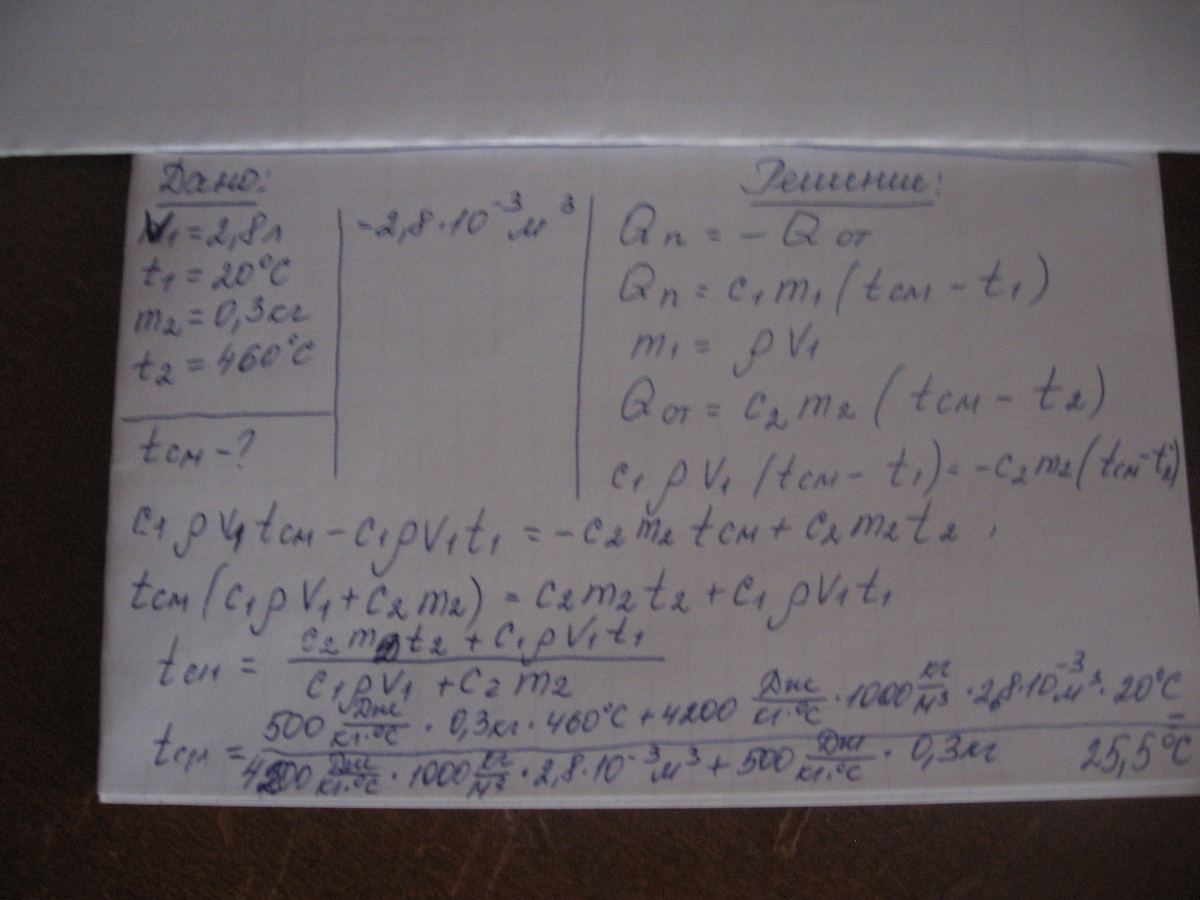 Дано:
V₁ = 2,8 л
t₁ = 20°C
m₂ = 0,3 кг
t₂ = 460°C
tсм - ?
-2,8·10⁻³ м³
Решение:
Qп = - Qот.
Qп = c₁m₁(tсм - t₁)
m₁ = ρV₁
Qот = c₂m₂(tсм - t₂)
c₁ρV₁(tсм - t₁) = -c₂m₂(tсм - t₂)
c₁ρV₁tсм - c₁ρV₁t₁ = -c₂m₂tсм + c₂m₂t₂
tсм(c₁ρV₁ + c₂m₂) = c₂m₂t₂ + c₁ρV₁t₁
tсм = (c₂m₂t₂ + c₁ρV₁t₁) / (c₁ρV₁ + c₂m₂)
tсм = (500 Дж/кг·°C · 0,3кг · 460°C + 4200 Дж/кг·°C · 1000 кг/м³ · 2,8·10⁻³ м³ · 20°C) / (4200 Дж/кг·°C · 1000 кг/м³ · 2,8·10⁻³ м³ + 500 Дж/кг·°C · 0,3кг) = 25,5°C